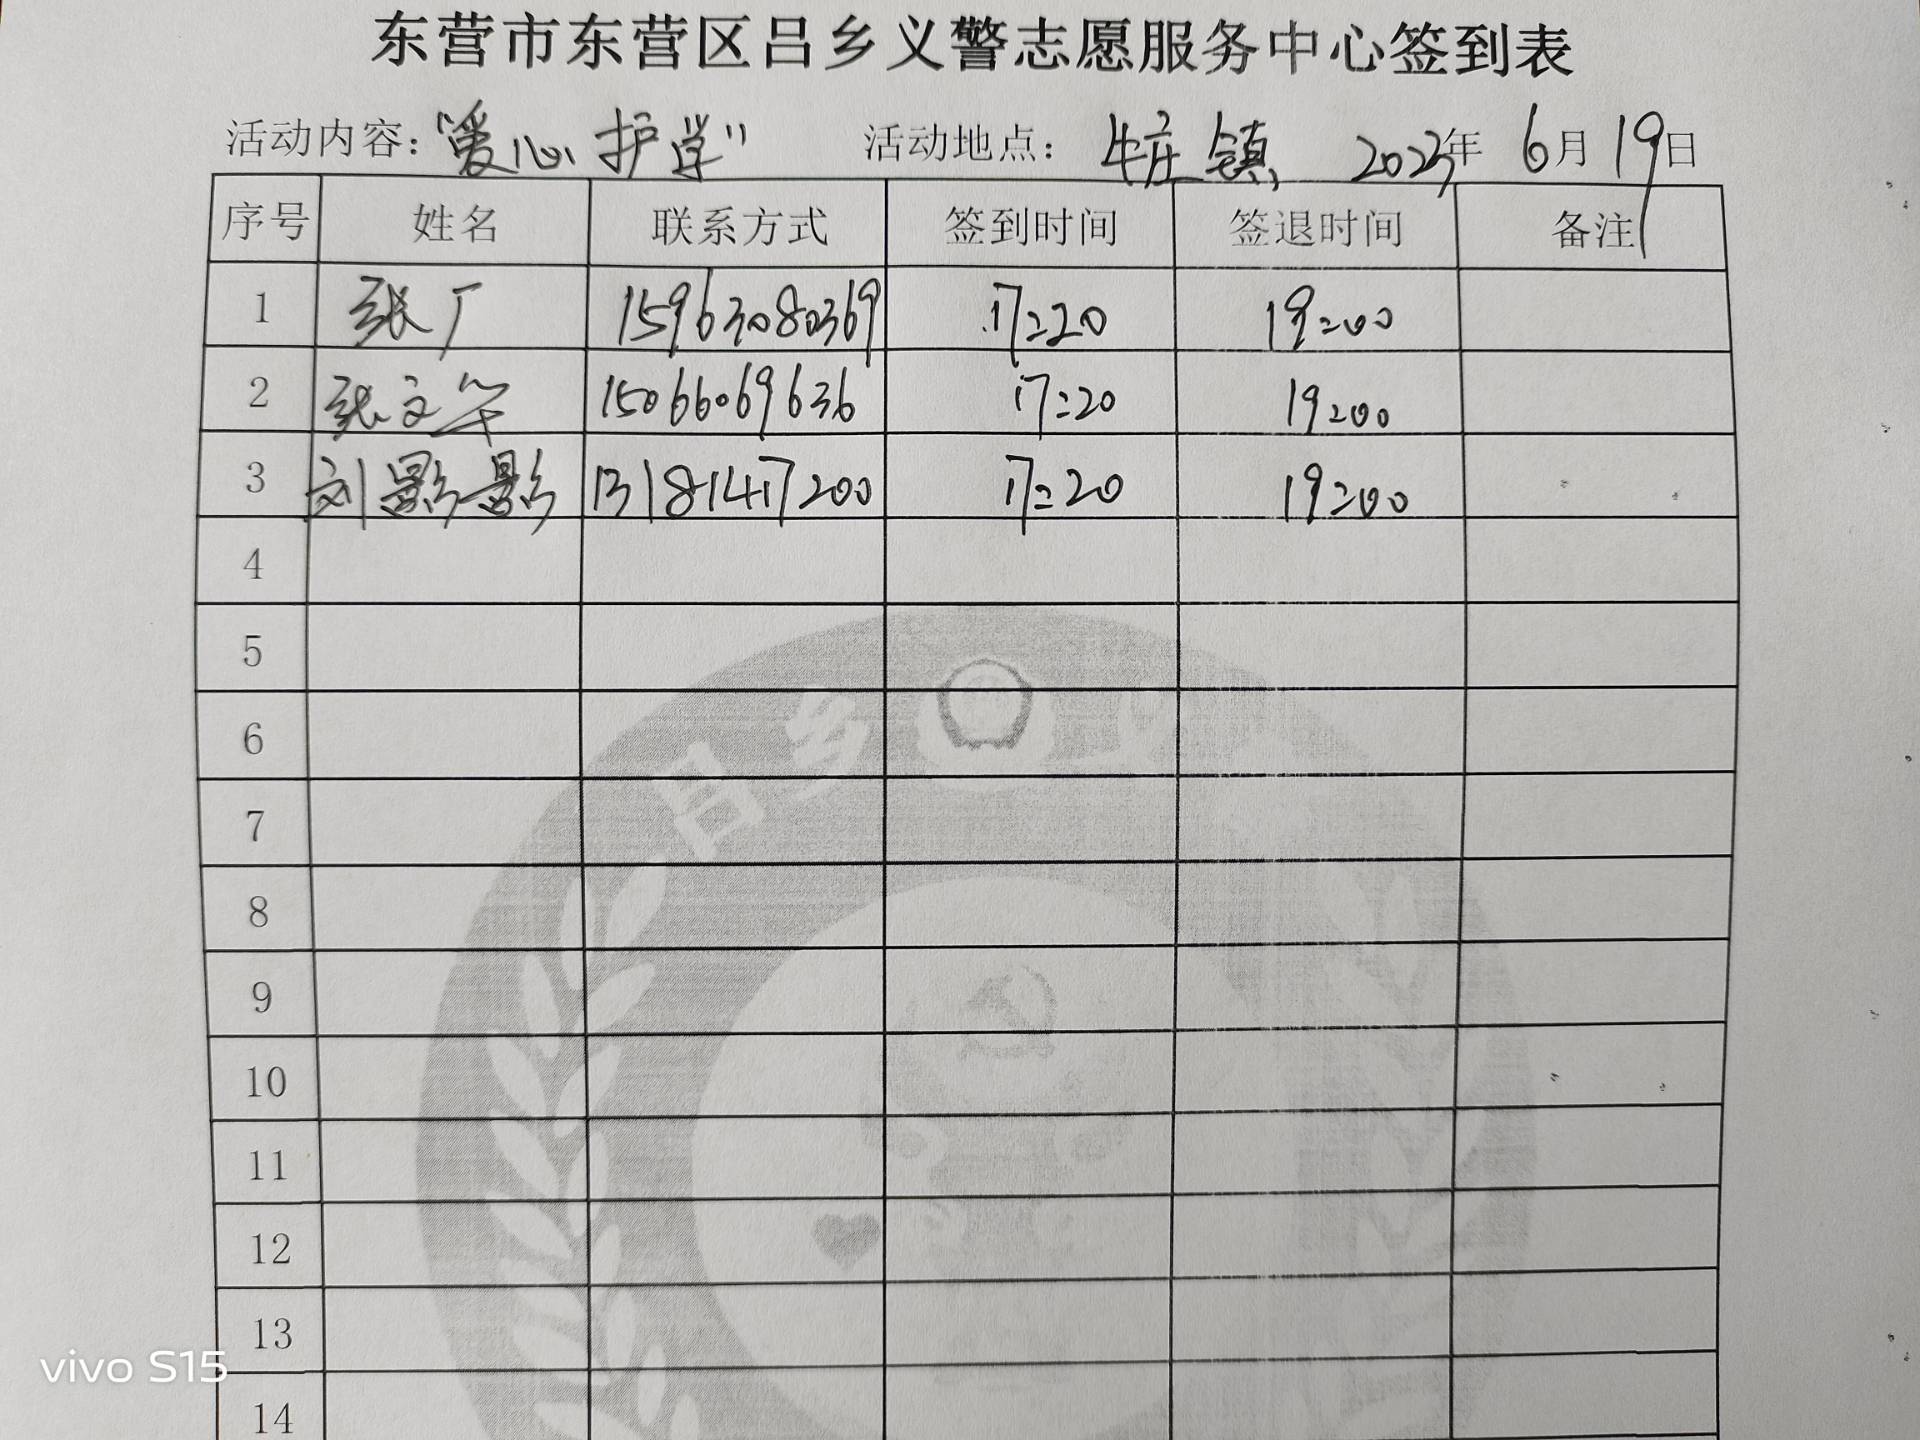 东营市东营区吕乡义警志愿服务中心签到表
活动内容：“爱心护学” 活动地点：牛庄镇，2023年6月19日
序号 姓名 联系方式 签到时间 签退时间 备注
1 张厂 15963080369 17:20 19:00
2 张文华 15066069636 17:20 19:00
3 刘影影 13181417200 17:20 19:00
4
5
6
7
8
9
10
11
12
13
14
吕乡
vivo S15